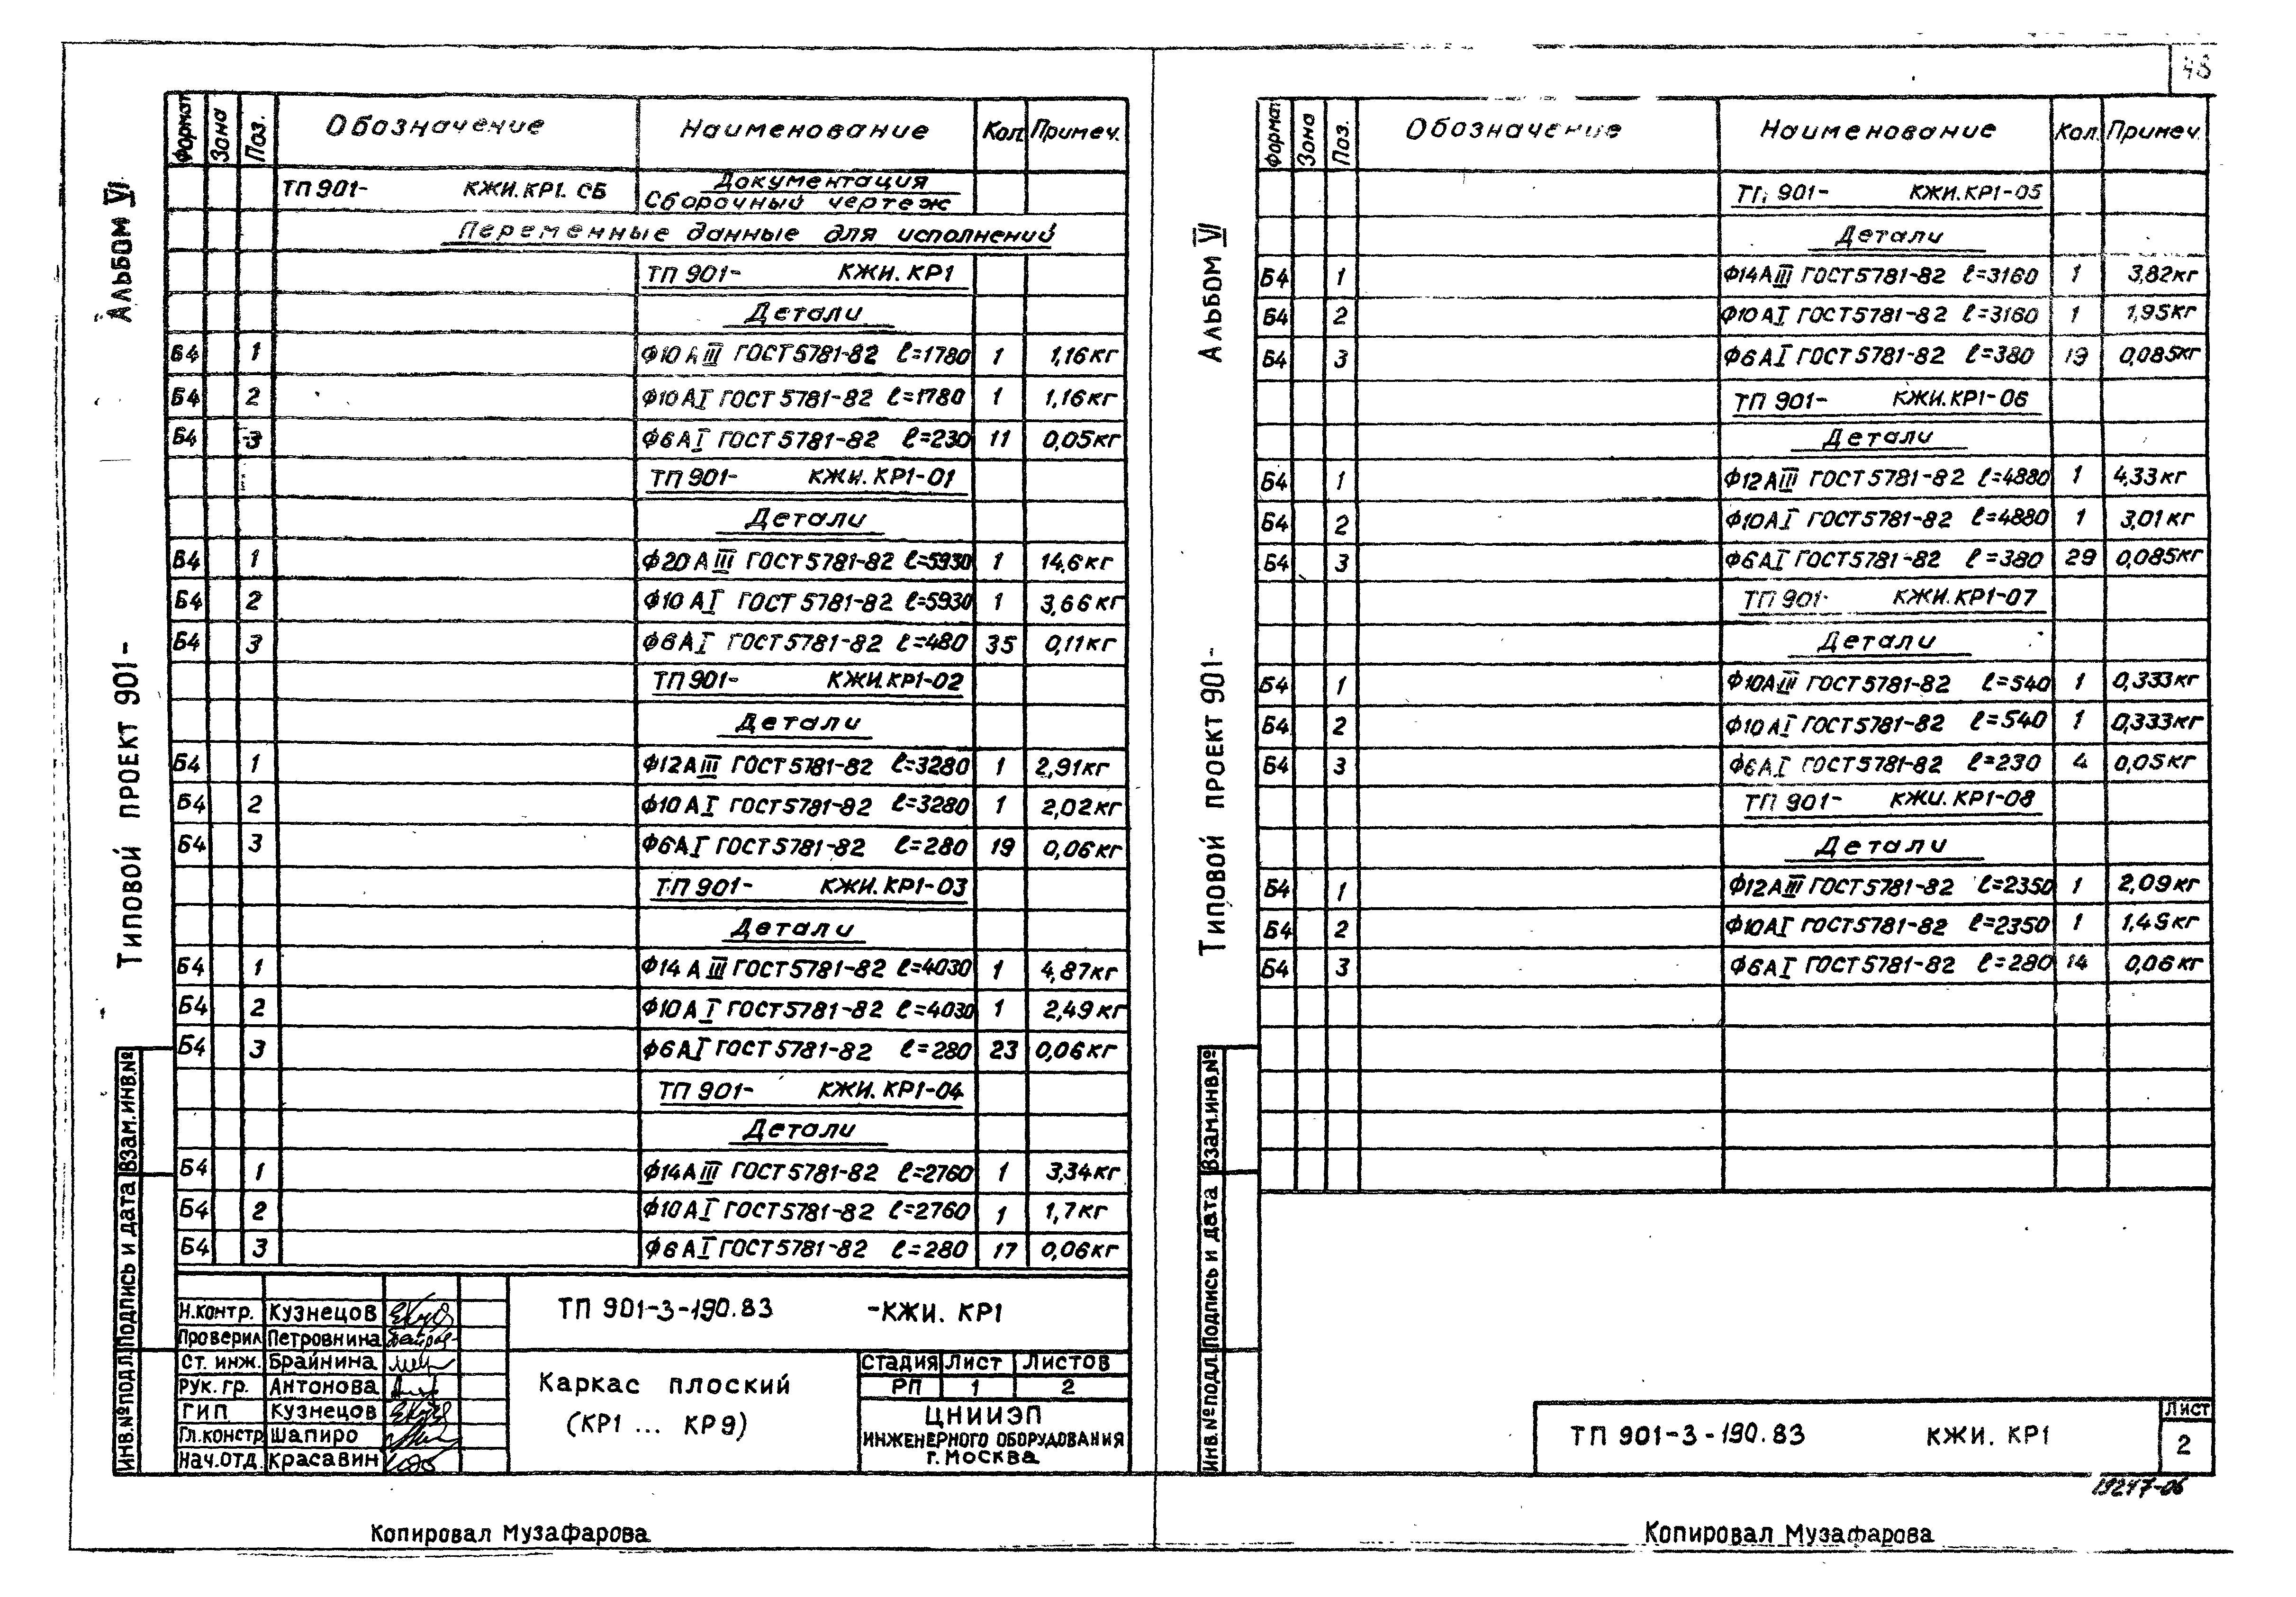 Альбом VI
Типовой проект 901-
Формат Зона Поз. Обозначение Наименование Кол. Примеч.
Документация
ТП 901- КЖИ.КР1.СБ Сборочный чертеж
Переменные данные для исполнений
ТП 901- КЖИ.КР1
Детали
Б4 1 Ф10АIII ГОСТ5781-82 ℓ=1780 1 1,16кг
Б4 2 Ф10АI ГОСТ5781-82 ℓ=1780 1 1,16кг
Б4 3 Ф6АI ГОСТ5781-82 ℓ=230 11 0,05кг
ТП 901- КЖИ.КР1-01
Детали
Б4 1 Ф20АIII ГОСТ5781-82 ℓ=5930 1 14,6кг
Б4 2 Ф10АI ГОСТ5781-82 ℓ=5930 1 3,66кг
Б4 3 Ф6АI ГОСТ5781-82 ℓ=480 35 0,11кг
ТП 901- КЖИ.КР1-02
Детали
Б4 1 Ф12АIII ГОСТ5781-82 ℓ=3280 1 2,91кг
Б4 2 Ф10АI ГОСТ5781-82 ℓ=3280 1 2,02кг
Б4 3 Ф6АI ГОСТ5781-82 ℓ=280 19 0,06кг
ТП 901- КЖИ.КР1-03
Детали
Б4 1 Ф14АIII ГОСТ5781-82 ℓ=4030 1 4,87кг
Б4 2 Ф10АI ГОСТ5781-82 ℓ=4030 1 2,49кг
Б4 3 Ф6АI ГОСТ5781-82 ℓ=280 23 0,06кг
ТП 901- КЖИ.КР1-04
Детали
Б4 1 Ф14АIII ГОСТ5781-82 ℓ=2760 1 3,34кг
Б4 2 Ф10АI ГОСТ5781-82 ℓ=2760 1 1,7кг
Б4 3 Ф6АI ГОСТ5781-82 ℓ=280 17 0,06кг
Взам.инв.№
Подпись и дата
Инв.№подл.
Н.контр. Кузнецов
Проверил Петровнина
Ст. инж. Брайнина
Рук. гр. Антонова
ГИП Кузнецов
Гл.констр Шапиро
Нач.отд. Красавин
ТП 901-3-190.83 -КЖИ. КР1
Каркас плоский
(КР1 ... КР9)
Стадия Лист Листов
РП 1 2
ЦНИИЭП
инженерного оборудования
г.Москва
Копировал Музафарова
48
Альбом VI
Типовой проект 901-
Формат Зона Поз. Обозначение Наименование Кол. Примеч.
ТП 901- КЖИ.КР1-05
Детали
Б4 1 Ф14АIII ГОСТ5781-82 ℓ=3160 1 3,82кг
Б4 2 Ф10АI ГОСТ5781-82 ℓ=3160 1 1,95кг
Б4 3 Ф6АI ГОСТ5781-82 ℓ=380 19 0,085кг
ТП 901- КЖИ.КР1-06
Детали
Б4 1 Ф12АIII ГОСТ5781-82 ℓ=4880 1 4,33кг
Б4 2 Ф10АI ГОСТ5781-82 ℓ=4880 1 3,01кг
Б4 3 Ф6АI ГОСТ5781-82 ℓ=380 29 0,085кг
ТП 901- КЖИ.КР1-07
Детали
Б4 1 Ф10АIII ГОСТ5781-82 ℓ=540 1 0,333кг
Б4 2 Ф10АI ГОСТ5781-82 ℓ=540 1 0,333кг
Б4 3 Ф6АI ГОСТ5781-82 ℓ=230 4 0,05кг
ТП 901- КЖИ.КР1-08
Детали
Б4 1 Ф12АIII ГОСТ5781-82 ℓ=2350 1 2,09кг
Б4 2 Ф10АI ГОСТ5781-82 ℓ=2350 1 1,45кг
Б4 3 Ф6АI ГОСТ5781-82 ℓ=280 14 0,06кг
Взам.инв.№
Подпись и дата
Инв.№подл.
ТП 901-3-190.83 КЖИ. КР1
Лист
2
19247-06
Копировал Музафарова